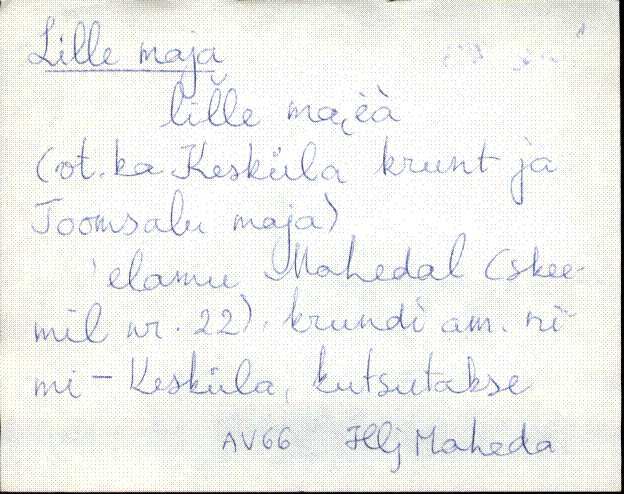 Lille maja
lille ma
(ot. ka Kesküla krunt ja
Toomsalu maja)
elamu Mahedal (skee-
mil nr. 22). krundi am. ni-
mi - Kesküla, kutsutakse
AV66 Hlj Maheda